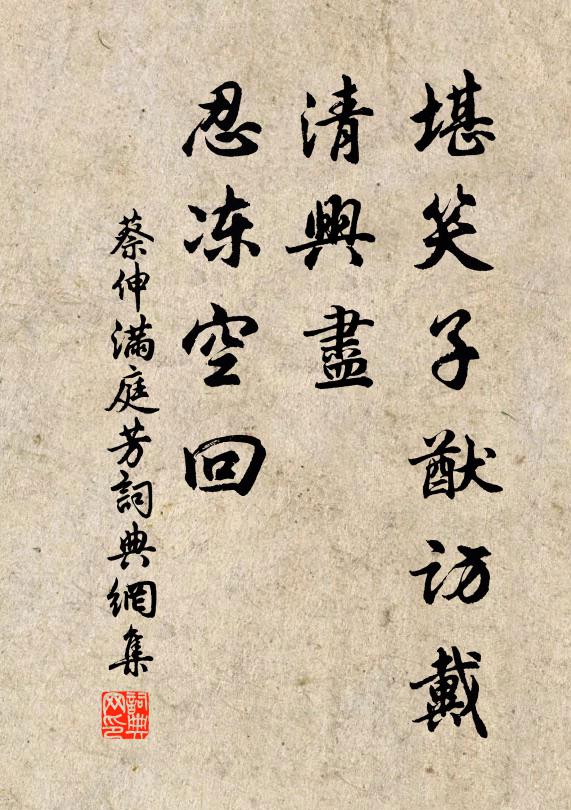 堪笑子猷訪戴
清興盡
忍冻空回
蔡伸滿庭芳詞典網集
詞典網印